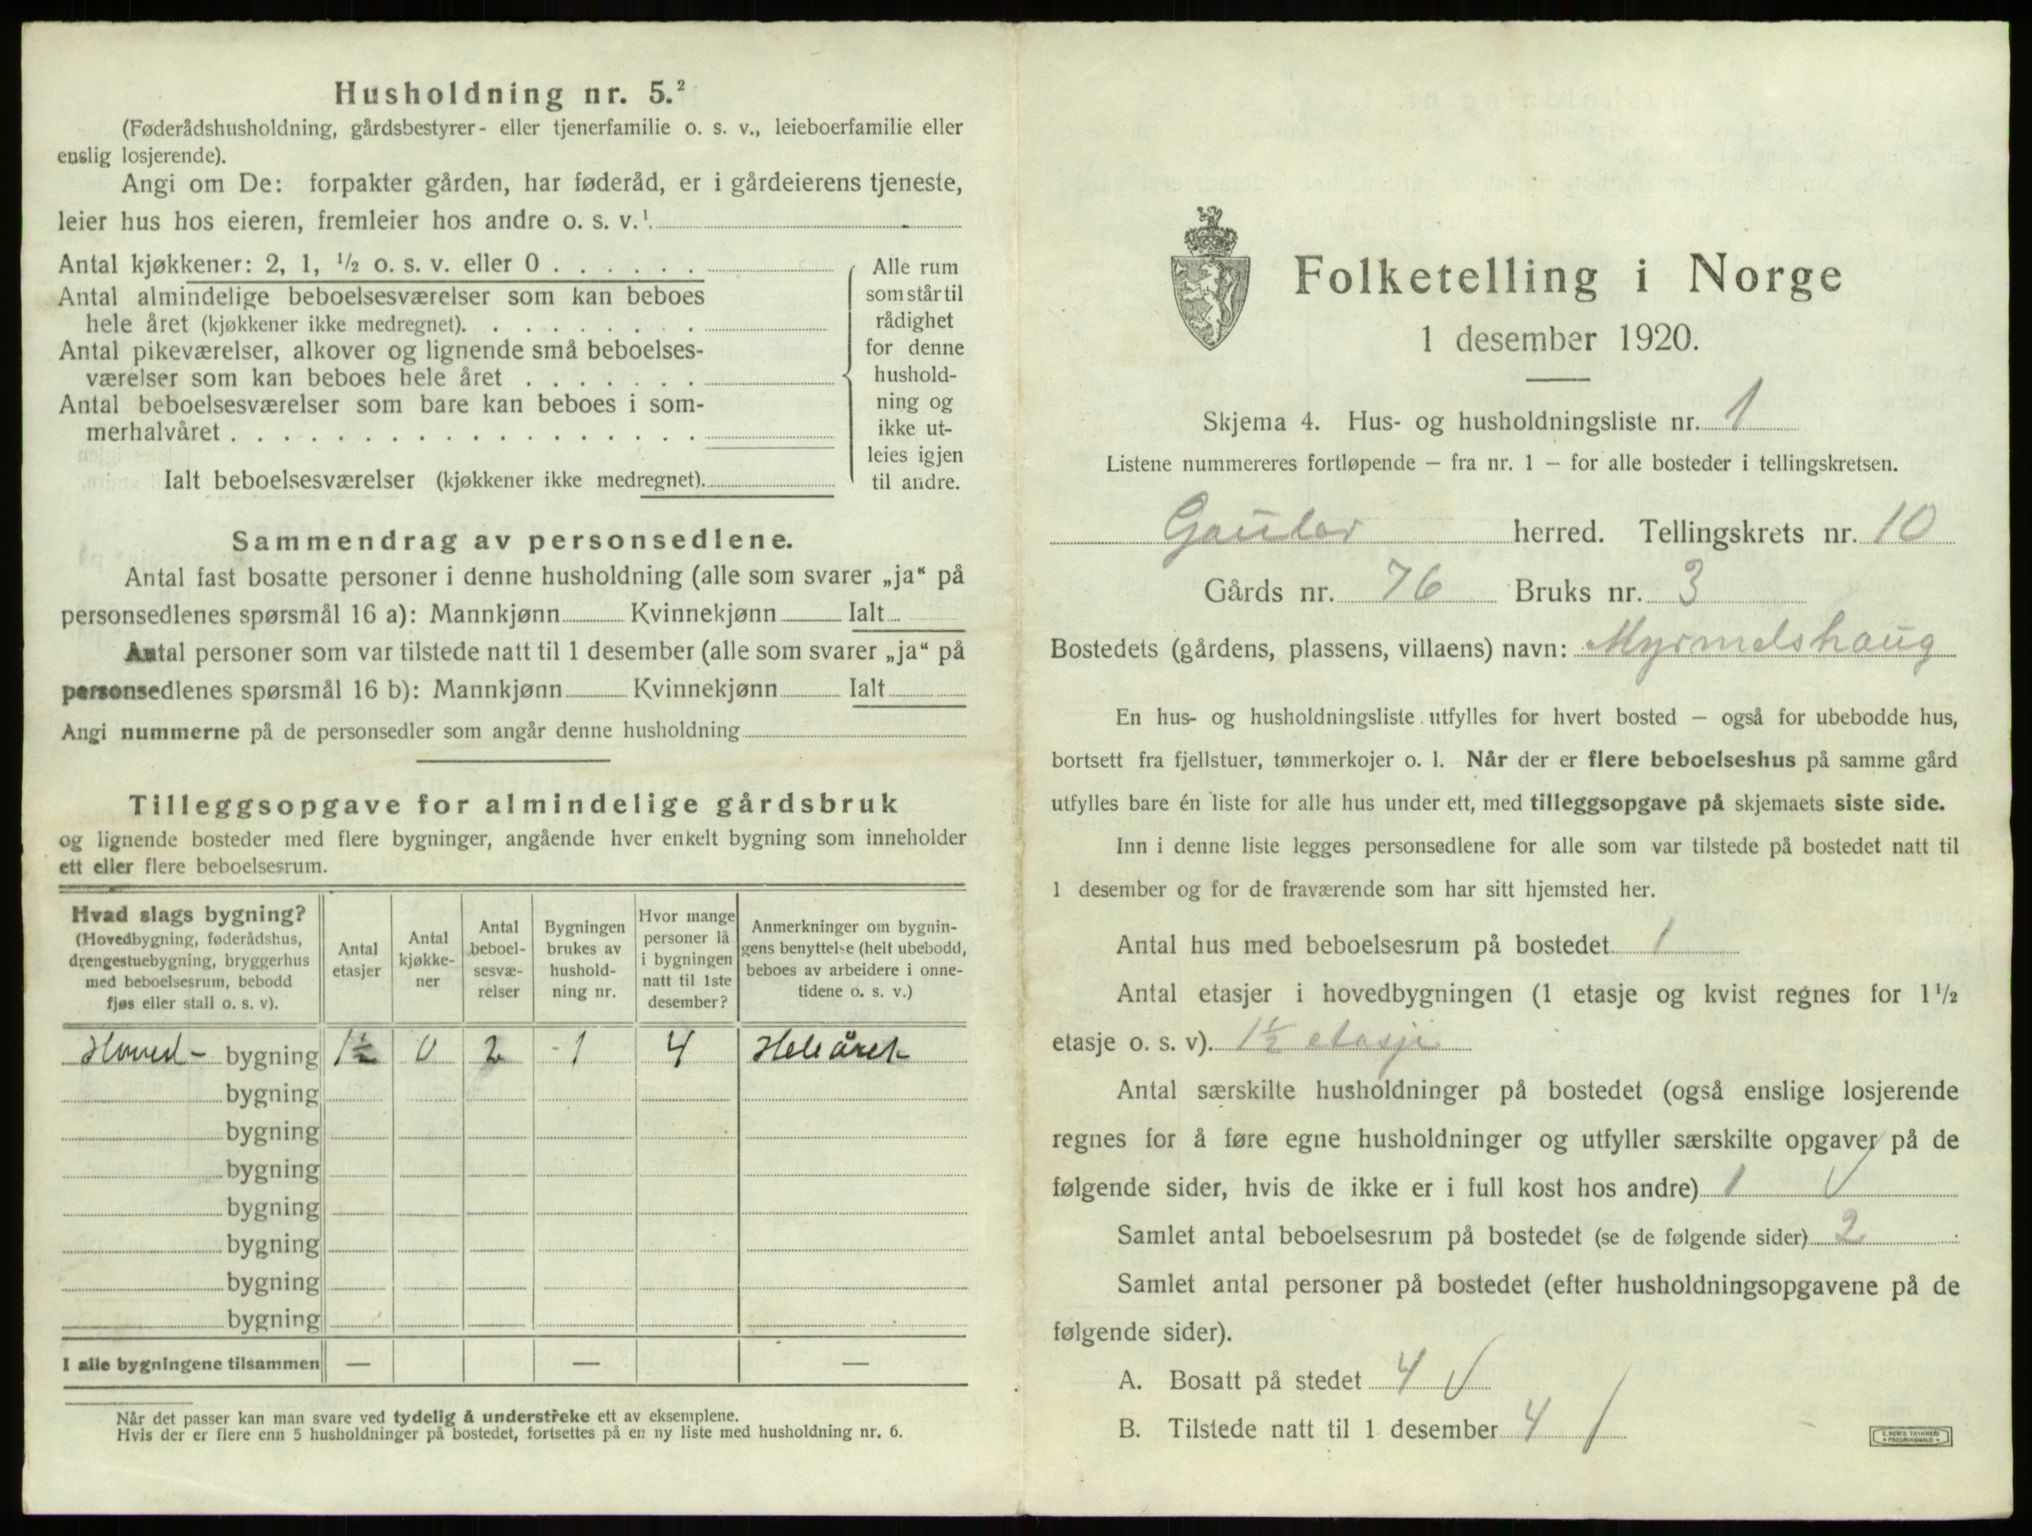 Husholdning nr. 5.²
(Føderådshusholdning, gårdsbestyrer- eller tjenerfamilie o. s. v., leieboerfamilie eller
enslig losjerende).
Angi om De: forpakter gården, har føderåd, er i gårdeierens tjeneste,
leier hus hos eieren, fremleier hos andre o. s. v.¹
Antal kjøkkener: 2, 1, ½ o. s. v. eller 0 . . . . . .
Antal almindelige beboelsesværelser som kan beboes
hele året (kjøkkener ikke medregnet). . . . . . . . .
Antal pikeværelser, alkover og lignende små beboelses-
værelser som kan beboes hele året . . . . . . .
Antal beboelsesværelser som bare kan beboes i som-
merhalvåret . . . . . . . . . . . . . . . . . .
Ialt beboelsesværelser (kjøkkener ikke medregnet).
Alle rum
som står til
rådighet
for denne
hushold-
ning og
ikke ut-
leies igjen
til andre.
Sammendrag av personsedlene.
Antal fast bosatte personer i denne husholdning (alle som svarer „ja“ på
personsedlenes spørsmål 16 a): Mannkjønn Kvinnekjønn Ialt
Antal personer som var tilstede natt til 1 desember (alle som svarer „ja“ på
personsedlenes spørsmål 16 b): Mannkjønn Kvinnekjønn Ialt
Angi nummerne på de personsedler som angår denne husholdning
Tilleggsopgave for almindelige gårdsbruk
og lignende bosteder med flere bygninger, angående hver enkelt bygning som inneholder
ett eller flere beboelsesrum.
Hvad slags bygning?
(Hovedbygning, føderådshus,
drengestuebygning, bryggerhus
med beboelsesrum, bebodd
fjøs eller stall o. s. v).
Antal
etasjer
Antal
kjøkke-
ner
Antal
beboel-
sesvæ-
relser
Bygningen
brukes av
hushold-
ning nr.
Hvor mange
personer lå
i bygningen
natt til 1ste
desember?
Anmerkninger om bygnin-
gens benyttelse (helt ubebodd,
beboes av arbeidere i onne-
tidene o. s. v.)
Hoved- bygning 1½ 0 2 1 4 Hele året
bygning
bygning
bygning
bygning
bygning
bygning
bygning
I alle bygningene tilsammen — — —
Når det passer kan man svare ved tydelig å understreke ett av eksemplene.
Hvis der er flere enn 5 husholdninger på bostedet, fortsettes på en ny liste med husholdning nr. 6.
Folketelling i Norge
1 desember 1920.
Skjema 4. Hus- og husholdningsliste nr. 1
Listene nummereres fortløpende – fra nr. 1 – for alle bosteder i tellingskretsen.
Gaular herred. Tellingskrets nr. 10
Gårds nr. 76 Bruks nr. 3
Bostedets (gårdens, plassens, villaens) navn: Myrmelshaug
En hus- og husholdningsliste utfylles for hvert bosted – også for ubebodde hus,
bortsett fra fjellstuer, tømmerkojer o. l. Når der er flere beboelseshus på samme gård
utfylles bare én liste for alle hus under ett, med tilleggsopgave på skjemaets siste side.
Inn i denne liste legges personsedlene for alle som var tilstede på bostedet natt til
1 desember og for de fraværende som har sitt hjemsted her.
Antal hus med beboelsesrum på bostedet 1
Antal etasjer i hovedbygningen (1 etasje og kvist regnes for 1½
etasje o. s. v). 1½ etasje
Antal særskilte husholdninger på bostedet (også enslige losjerende
regnes for å føre egne husholdninger og utfyller særskilte opgaver på de
følgende sider, hvis de ikke er i full kost hos andre) 1 √
Samlet antal beboelsesrum på bostedet (se de følgende sider) 2
Samlet antal personer på bostedet (efter husholdningsopgavene på de
følgende sider).
A. Bosatt på stedet 4 √
B. Tilstede natt til 1 desember 4 /